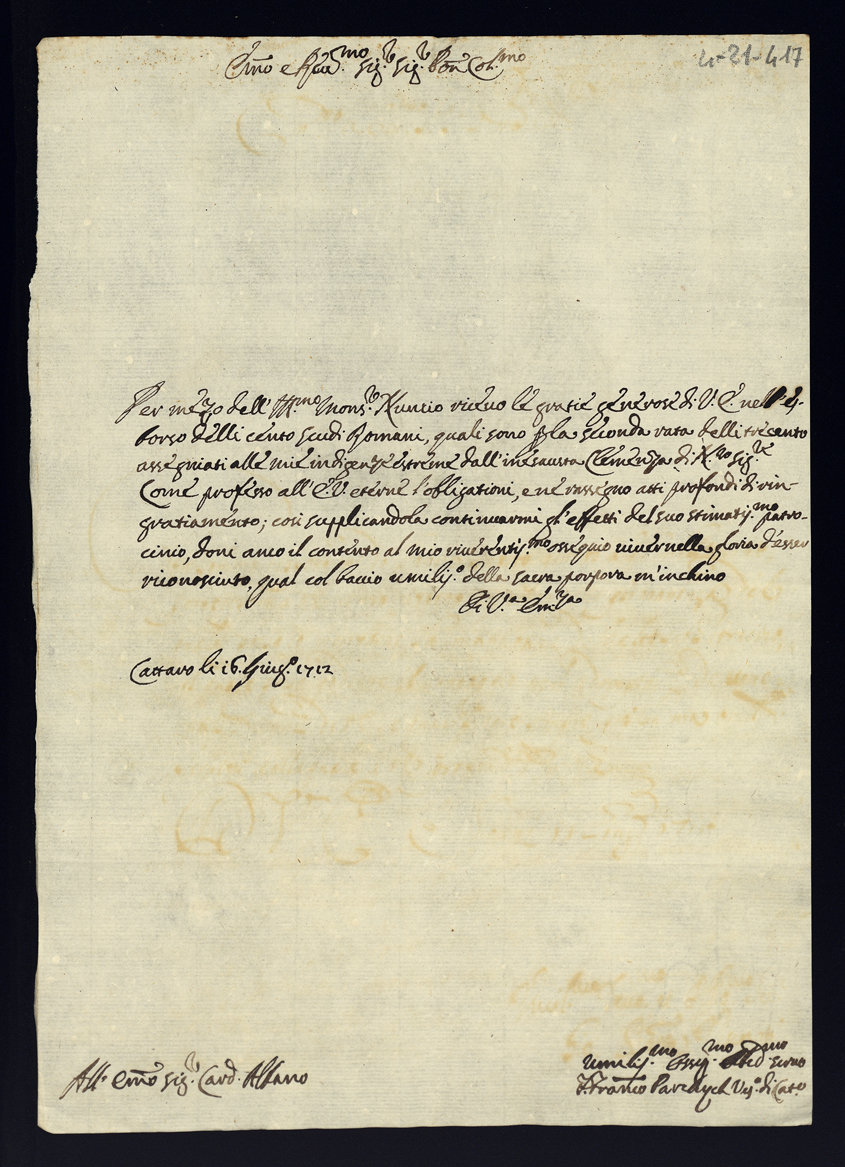 Emo e Rev.mo Sig.r Sig.r Pron Col.mo
4-21-417
Per mezo dell'Ill.mo Mons.r Nuncio ricevo le gratie generose di V. E. nell'es-
borso delli cento scudi Romani, quali sono p la seconda rata delli trecento
assegniati alle mie indigenze estreme dall'inesausta Clemenza di N.ro Sig.re
Come professo all'E. V. eterne l'obligationi, e ne rassegno atti profondi di rin-
gratiamento; così supplicandola continuarmi gl'effetti del suo stimatiss.mo patro-
cinio, doni anco il contento al mio riverentiss.mo osseguio viver nella gloria d'esser
riconosciuto, qual col baccio umiliss.o della sacra porpora m'inchino
Di V.a Em.za
Cattaro li 16. Giug.o 1712
All' Emo Sig.r Card. Albano
Umiliss.mo Osseq.mo Obed.mo Servo
F. Franco Parchych Ves.o di Catt.o